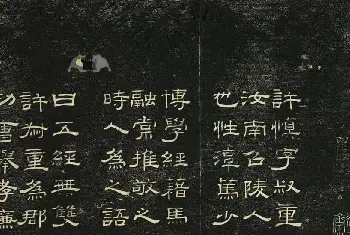 許慎字叔重
汝南召陵人
也性淳篤少
博學經籍馬
融常推敬之
時人為之語
曰五經無雙
許叔重為郡
功曹舉孝廉